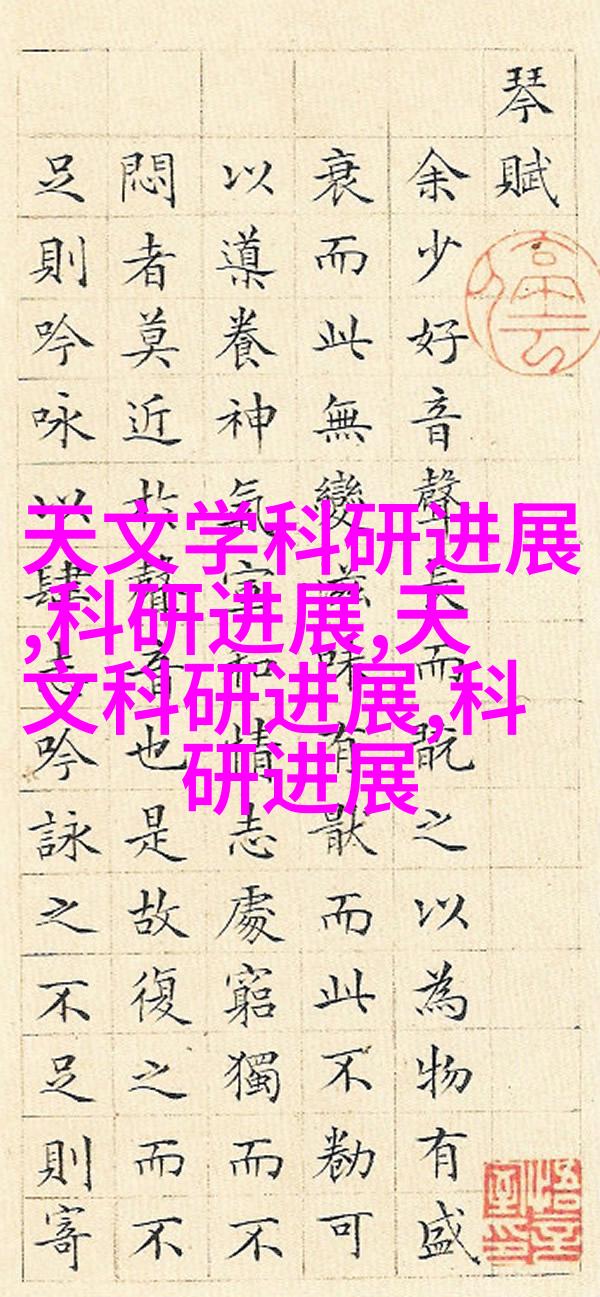 琴賦
余少好音聲長而翫之以為物有盛
衰而此無變滋味有猒而此不勌可
以導養神氣宣和情志處窮獨而不
悶者莫近於聲音也是故復之而不
足則吟咏以肆志吟詠之不足則寄
天文学科研进展
,科研进展,天
文科研进展,科
研进展